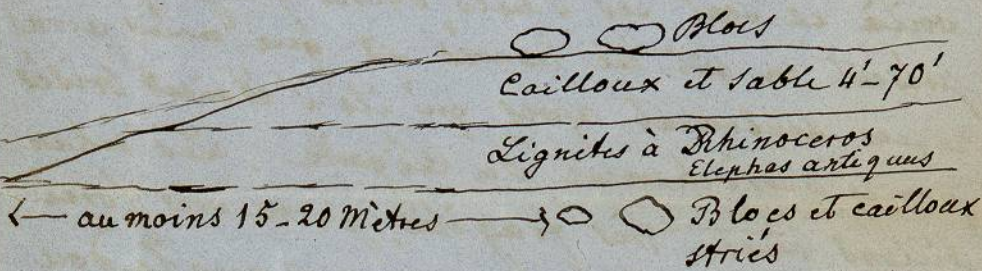 Blocs
Cailloux et sable 4'-70'
Lignites à Rhinoceros
Elephas antiquus
au moins 15-20 Mètres
Blocs et cailloux
striés